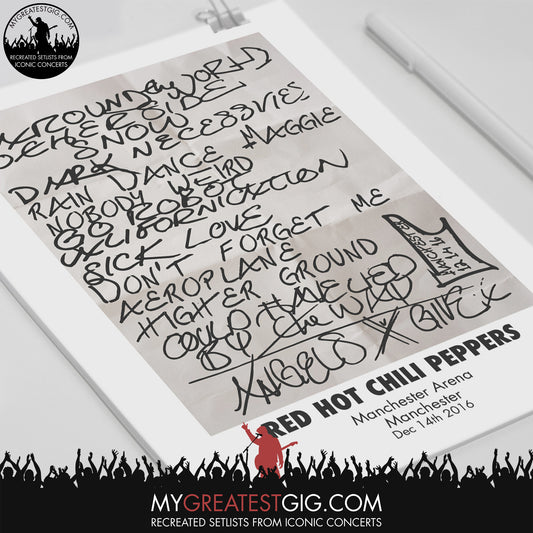 MYGREATESTGIG.COM
RECREATED SETLISTS FROM
ICONIC CONCERTS
AROUND WORLD
OTHERSIDE
SNOW
DARK NECESSITIES
RAIN DANCE MAGGIE
NOBODY WEIRD
GO ROBOT
CALIFORNICATION
SICK LOVE
DON'T FORGET ME
AEROPLANE
HIGHER GROUND
COULD HAVE LIED
BY THE WAY
ANGELS X GIVE
MANCHESTER
12 14 16
RED HOT CHILI PEPPERS
Manchester Arena
Manchester
Dec 14th 2016
MYGREATESTGIG.COM
RECREATED SETLISTS FROM ICONIC CONCERTS